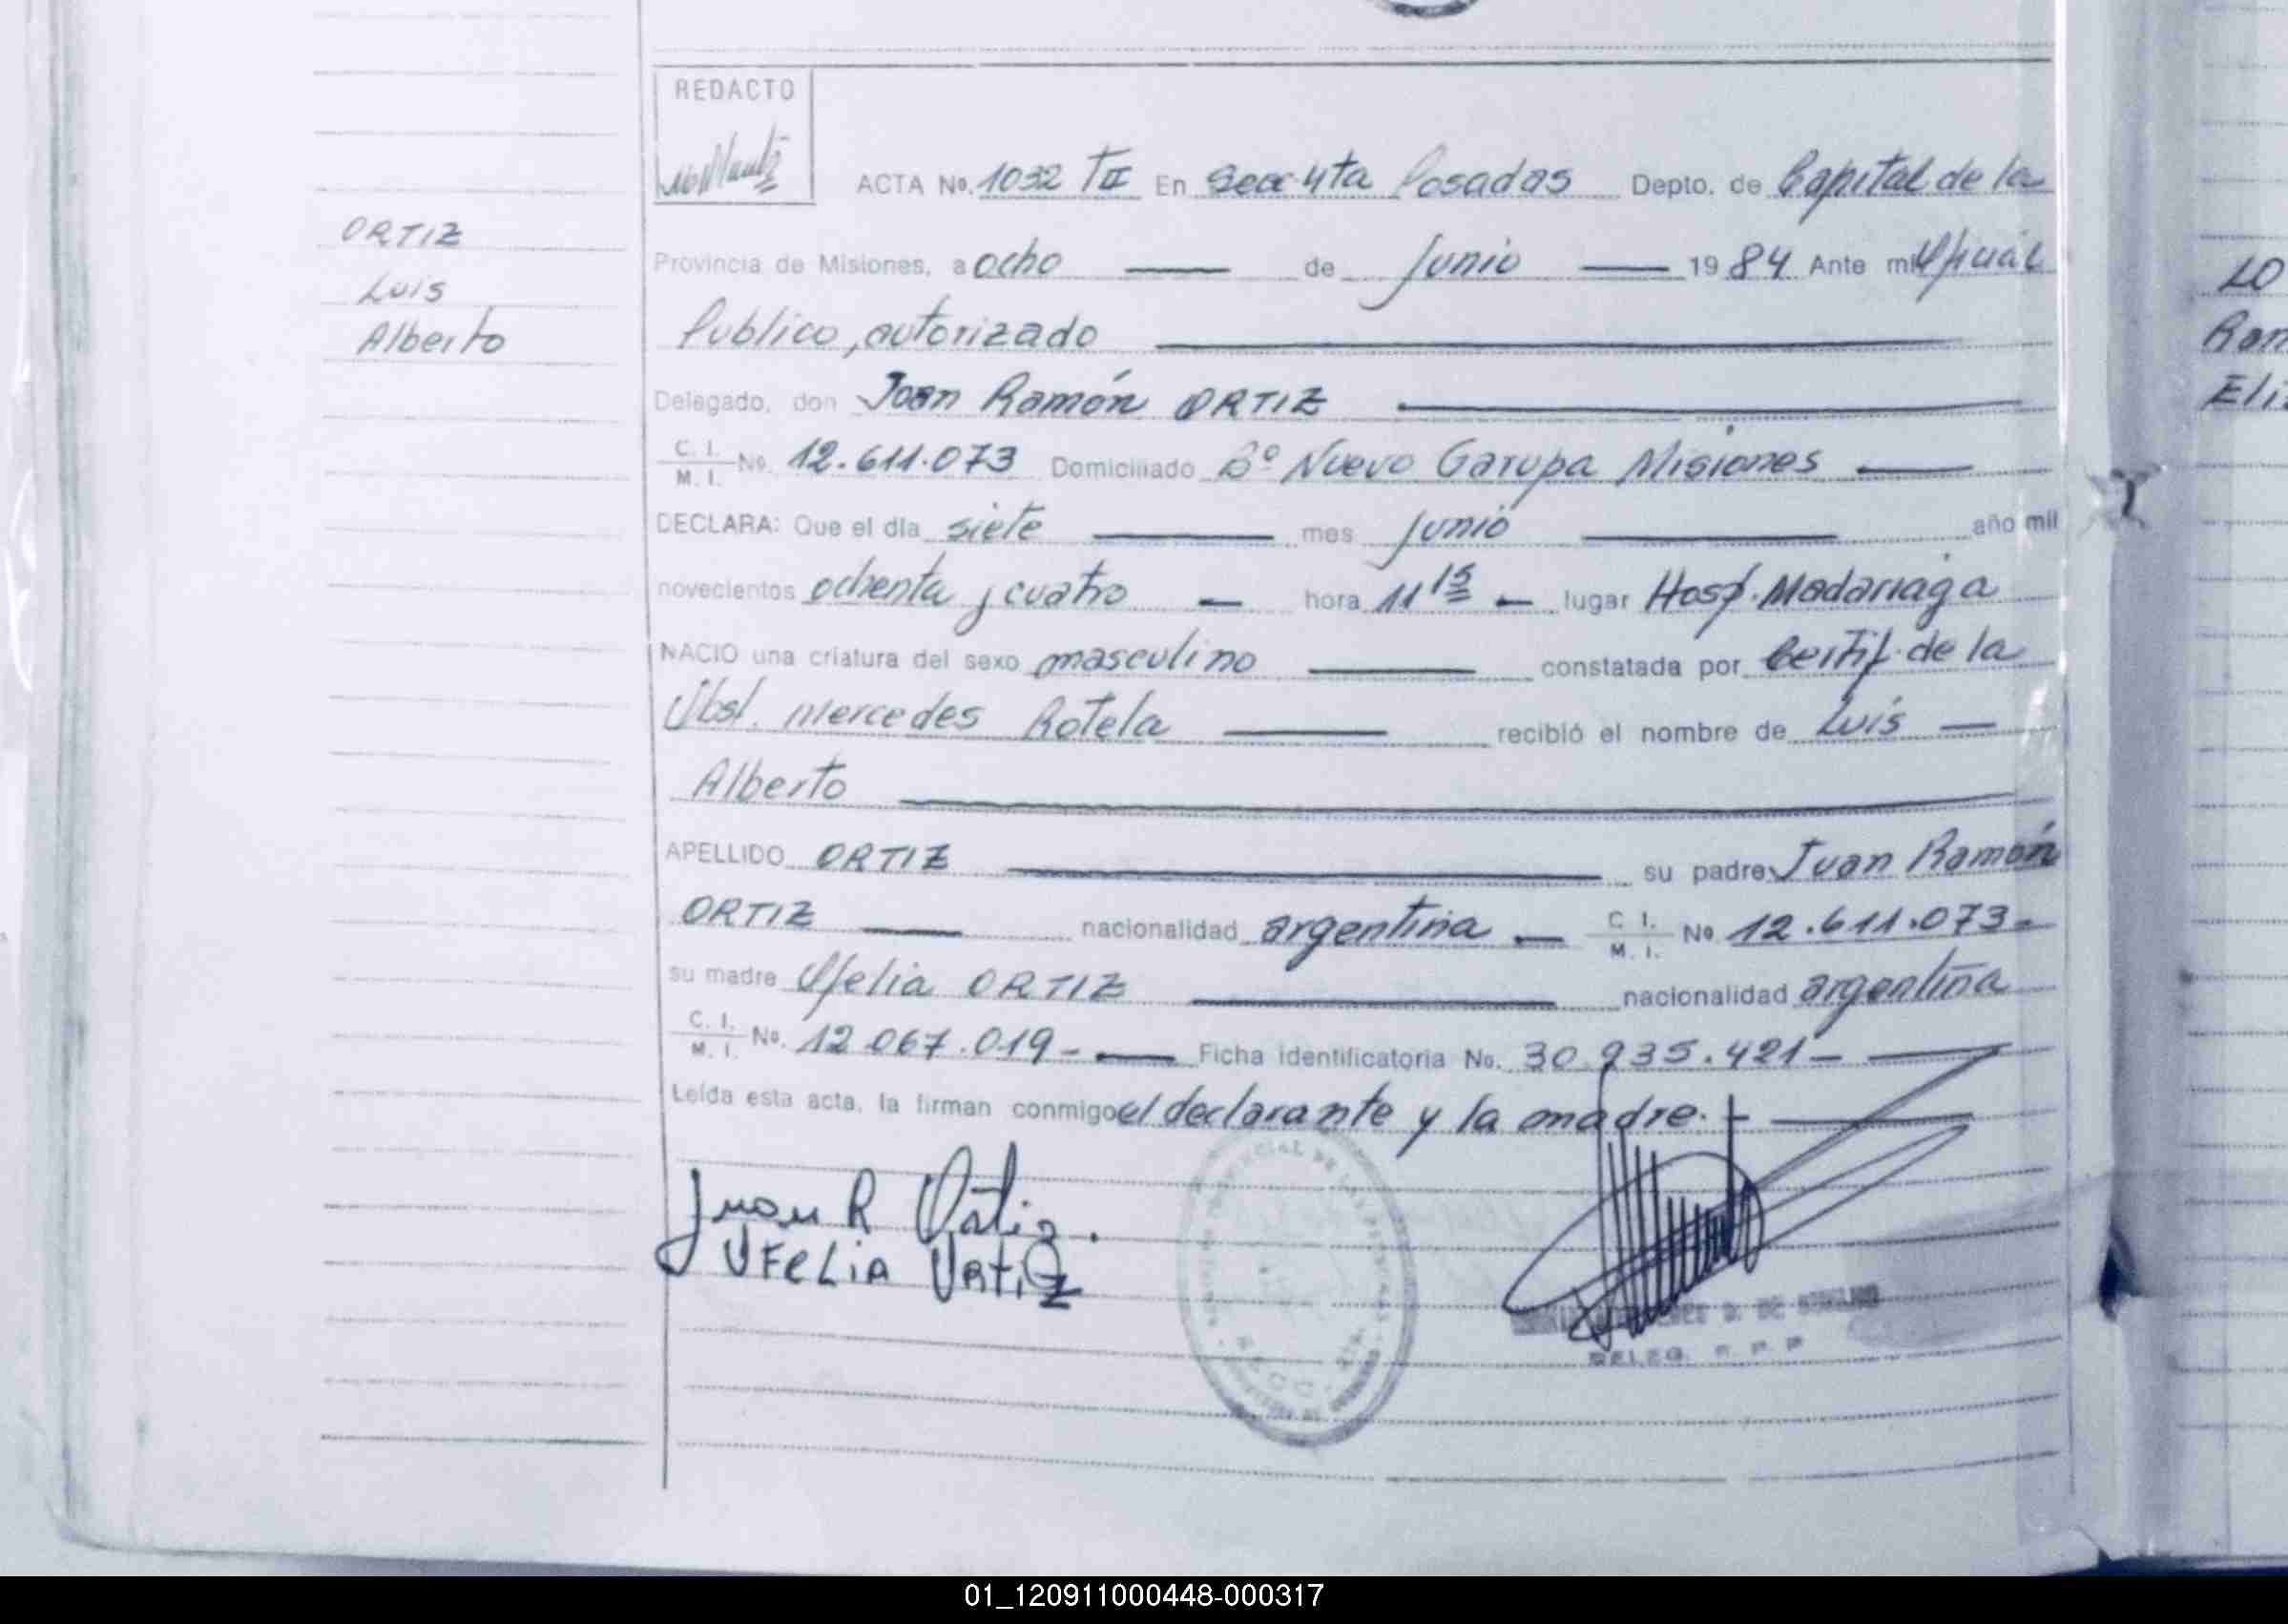 REDACTO
ACTA No. 1032 TII En Secc 4ta Posadas Depto. de Capital de la
ORTIZ
Luis
Alberto
Provincia de Misiones, a ocho de Junio 1984 Ante mi Oficial
Publico, autorizado
Delegado, don Juan Ramón ORTIZ
C. I.
M. I. No. 12.611.073 Domiciliado Bº Nuevo Garupa Misiones
DECLARA: Que el día siete mes Junio año mil
novecientos ochenta y cuatro hora 11 15 lugar Hosp. Madariaga
NACIO una criatura del sexo masculino constatada por Certif. de la
Obst. Mercedes Rotela recibió el nombre de Luis
Alberto
APELLIDO ORTIZ su padre Juan Ramón
ORTIZ nacionalidad argentina C. I. M. I. No 12.611.073-
su madre Ofelia ORTIZ nacionalidad argentina
C. I.
M. I. No. 12.067.019- Ficha identificatoria No. 30.935.421-
Leída esta acta, la firman conmigo el declarante y la madre.
Juan R Ortiz.
OFELIA ORTiZ
DELEG. R. P. P
LO
Ram
Eli
01_120911000448-000317